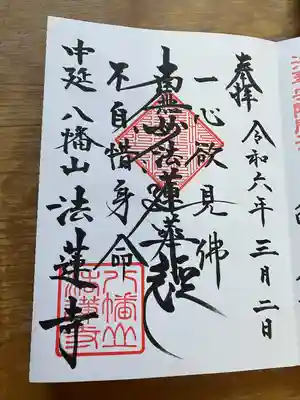 奉拝
令和六年三月二日
一心欲見佛
南無妙法蓮華経
不自惜身命
中延 八幡山 法蓮寺